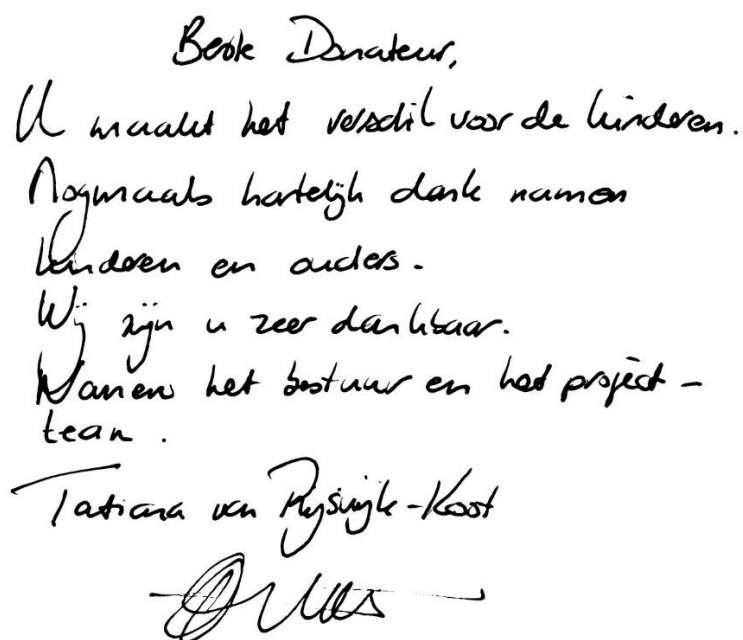 Beste Donateur,
U maakt het verschil voor de kinderen.
Nogmaals hartelijk dank namen
kinderen en ouders.
Wij zijn u zeer dankbaar.
Namens het bestuur en het project-
team.
Tatiana van Rijswijk-Koot